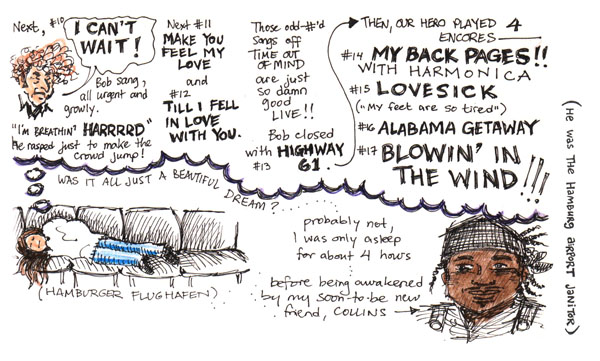 Next, #10
I CAN'T
WAIT!
Bob sang,
all urgent and
growly.
"I'm BREATHIN' HARRRRD"
He rasped just to make the
crowd jump!
Next #11
MAKE YOU
FEEL MY
LOVE
and
#12
TILL I FELL
IN LOVE
WITH YOU.
Those odd-#'d
songs off
TIME OUT
OF MIND
are just
so damn
good
LIVE!!
Bob closed
with HIGHWAY
#13 61.
THEN, OUR HERO PLAYED 4
ENCORES
#14 MY BACK PAGES!!
WITH HARMONICA
#15 LOVESICK
("My feet are so tired")
#16 ALABAMA GETAWAY
#17 BLOWIN' IN
THE WIND!!!
WAS IT ALL JUST A BEAUTIFUL
DREAM?
(HAMBURGER FLUGHAFEN)
probably not,
I was only asleep
for about 4 hours
before being awakened
by my soon-to-be new
friend, COLLINS
(He was THE HAMBURG AIRPORT JANITOR)